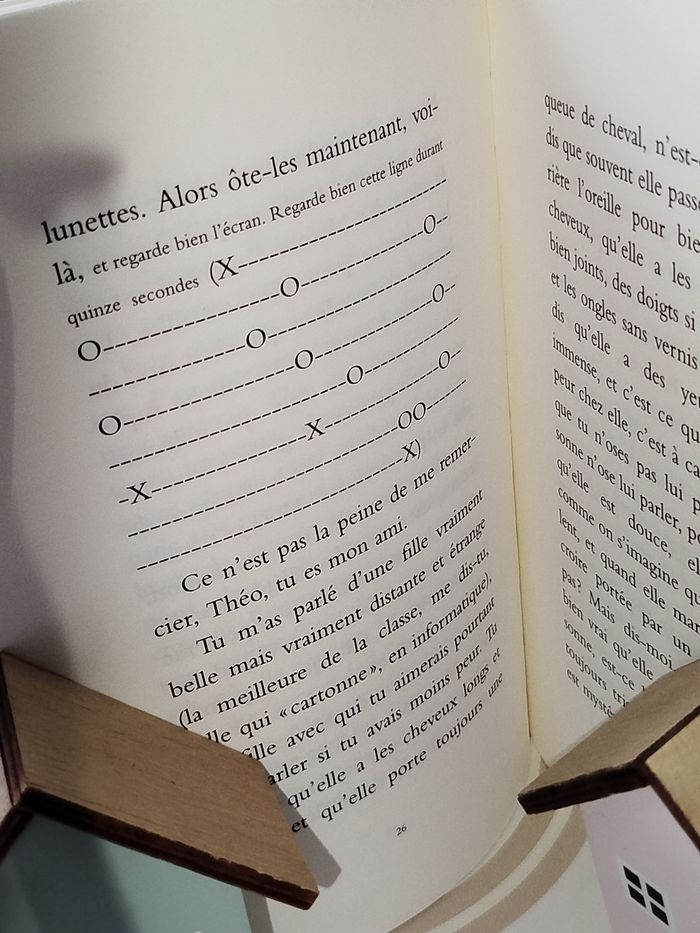 lunettes. Alors ôte-les maintenant, voi-
là, et regarde bien l'écran. Regarde bien cette ligne durant
quinze secondes (X-----------------------
O-------------------O---------------O--
------------------O----------------------
O--------------------O---------------O--
--------------------------O------------
-X------------------X---------------O--
-------------------------------OO-----
-------------------------------X)
Ce n'est pas la peine de me remer-
cier, Théo, tu es mon ami.
Tu m'as parlé d'une fille vraiment
belle mais vraiment distante et étrange
(la meilleure de la classe, me dis-tu,
qui «cartonne», en informatique),
avec qui tu aimerais pourtant
si tu avais moins peur. Tu
qu'elle a les cheveux longs et
et qu'elle porte toujours une
26
queue de cheval, n'est-
dis que souvent elle pass
rière l'oreille pour bie
cheveux, qu'elle a les
bien joints, des doigts si
et les ongles sans vernis
dis qu'elle a des ye
immense, et c'est ce qu
peur chez elle, c'est à ca
que tu n'oses pas lui p
sonne n'ose lui parler, p
qu'elle est douce, el
comme on s'imagine qu
lent, et quand elle mar
croire portée par un
pas? Mais dis-moi
bien vrai qu'elle
sonne, est-ce
toujours tri
est mysté